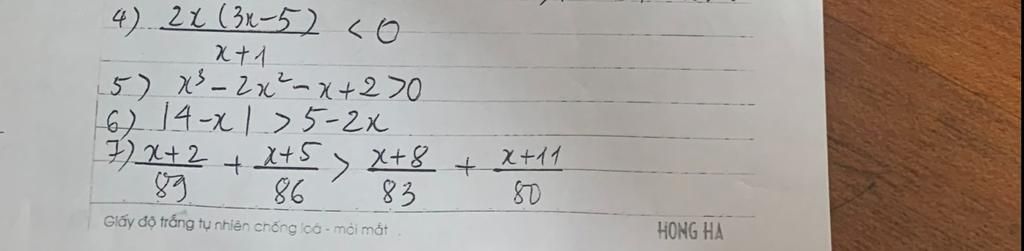 4) 2x(3x-5)/x+1 < 0
5) x³ - 2x² - x + 2 > 0
6) |4-x| > 5-2x
7) x+2/89 + x+5/86 > x+8/83 + x+11/80
Giấy độ trắng tự nhiên chống loá - mỏi mắt HONG HA